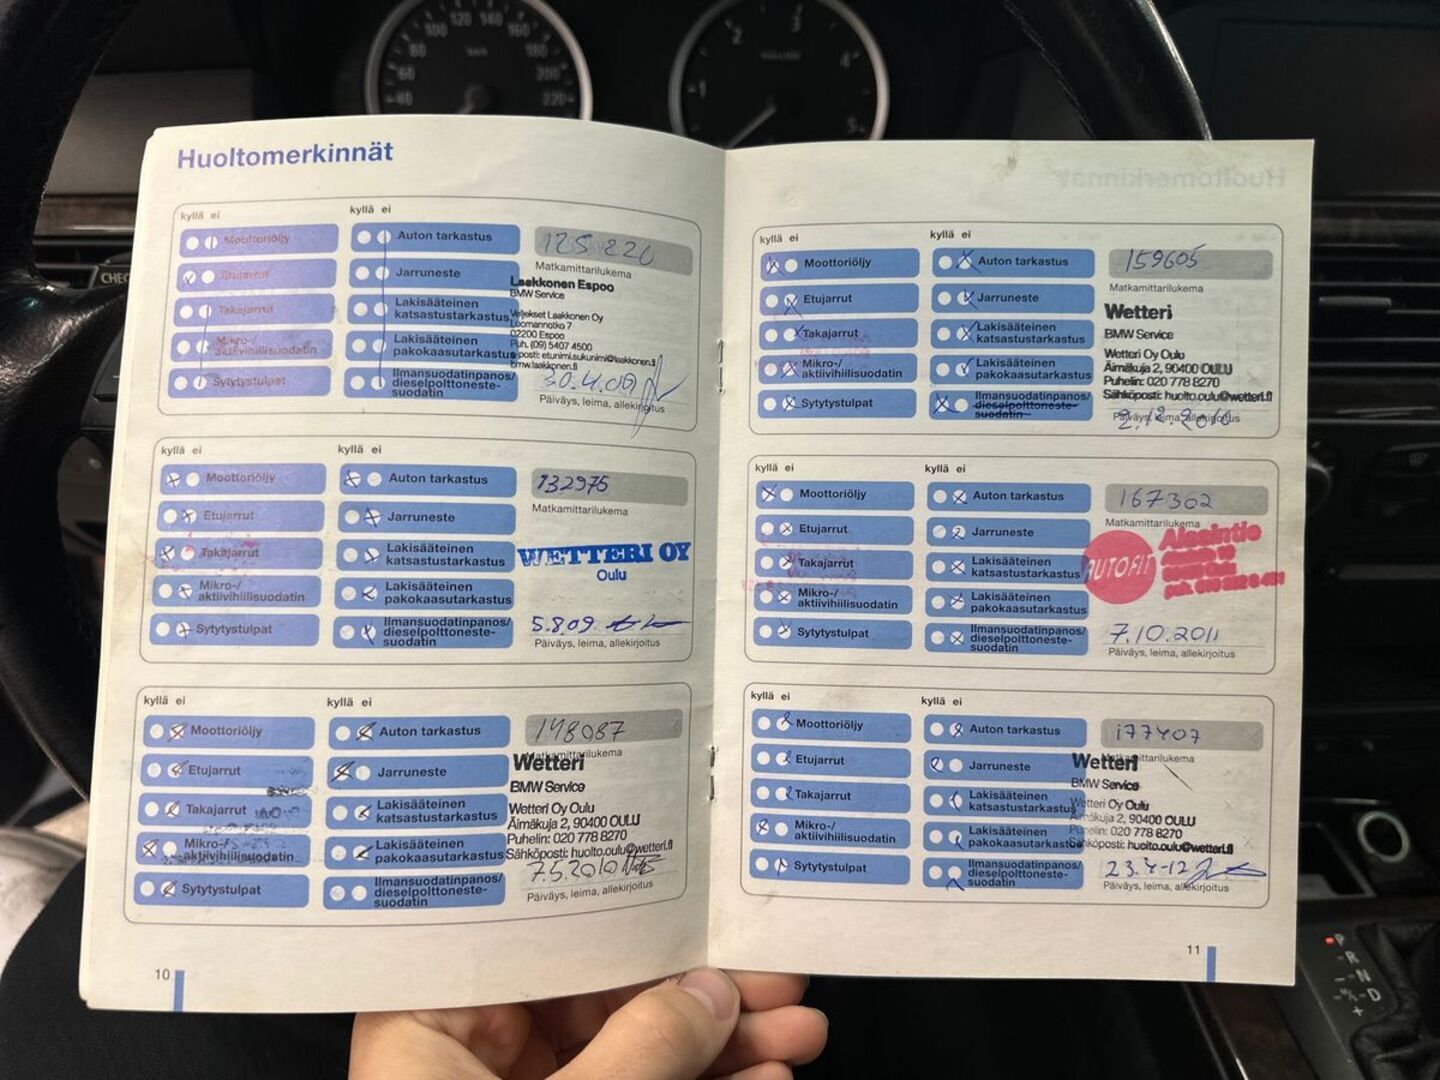 Huoltomerkinnät
kyllä ei
kyllä ei
Moottoriöljy
Auton tarkastus
125 220
Etujarrut
Jarruneste
Matkamittarilukema
Takajarrut
Lakisääteinen
katsastustarkastus
Mikro-/
aktiivihiilisuodatin
Lakisääteinen
pakokaasutarkastus
Sytytystulpat
Ilmansuodatinpanos/
dieselpolttoneste-
suodatin
Laakkonen Espoo
BMW Service
Veljekset Laakkonen Oy
Luomannotko 7
02200 Espoo
Puh. (09) 5407 4500
s-posti: etunimi.sukunimi@laakkonen.fi
bmw.laakkonen.fi
30.4.09
Päiväys, leima, allekirjoitus
kyllä ei
kyllä ei
Moottoriöljy
Auton tarkastus
132975
Etujarrut
Jarruneste
Matkamittarilukema
Takajarrut
Lakisääteinen
katsastustarkastus
Mikro-/
aktiivihiilisuodatin
Lakisääteinen
pakokaasutarkastus
Sytytystulpat
Ilmansuodatinpanos/
dieselpolttoneste-
suodatin
WETTERI OY
Oulu
5.8.09
Päiväys, leima, allekirjoitus
kyllä ei
kyllä ei
Moottoriöljy
Auton tarkastus
148087
Etujarrut
Jarruneste
Matkamittarilukema
Takajarrut
Lakisääteinen
katsastustarkastus
Mikro-/
aktiivihiilisuodatin
Lakisääteinen
pakokaasutarkastus
Sytytystulpat
Ilmansuodatinpanos/
dieselpolttoneste-
suodatin
Wetteri
BMW Service
Wetteri Oy Oulu
Äimäkuja 2, 90400 OULU
Puhelin: 020 778 8270
Sähköposti: huolto.oulu@wetteri.fi
7.5.2010
Päiväys, leima, allekirjoitus
10
kyllä ei
kyllä ei
Moottoriöljy
Auton tarkastus
159605
Etujarrut
Jarruneste
Matkamittarilukema
Takajarrut
Lakisääteinen
katsastustarkastus
Mikro-/
aktiivihiilisuodatin
Lakisääteinen
pakokaasutarkastus
Sytytystulpat
Ilmansuodatinpanos/
dieselpolttoneste-
suodatin
Wetteri
BMW Service
Wetteri Oy Oulu
Äimäkuja 2, 90400 OULU
Puhelin: 020 778 8270
Sähköposti: huolto.oulu@wetteri.fi
2.12.2010
Päiväys, leima, allekirjoitus
kyllä ei
kyllä ei
Moottoriöljy
Auton tarkastus
167302
Etujarrut
Jarruneste
Matkamittarilukema
Takajarrut
Lakisääteinen
katsastustarkastus
Mikro-/
aktiivihiilisuodatin
Lakisääteinen
pakokaasutarkastus
Sytytystulpat
Ilmansuodatinpanos/
dieselpolttoneste-
suodatin
AUTOFIT
Alasintie
7.10.2011
Päiväys, leima, allekirjoitus
kyllä ei
kyllä ei
Moottoriöljy
Auton tarkastus
177407
Etujarrut
Jarruneste
Matkamittarilukema
Takajarrut
Lakisääteinen
katsastustarkastus
Mikro-/
aktiivihiilisuodatin
Lakisääteinen
pakokaasutarkastus
Sytytystulpat
Ilmansuodatinpanos/
dieselpolttoneste-
suodatin
Wetteri
BMW Service
Wetteri Oy Oulu
Äimäkuja 2, 90400 OULU
Puhelin: 020 778 8270
Sähköposti: huolto.oulu@wetteri.fi
23.4-12
Päiväys, leima, allekirjoitus
11
40 60 80 100 120 140 160 180 200 220
km/h
1 2 3 4 5
P
R
N
D